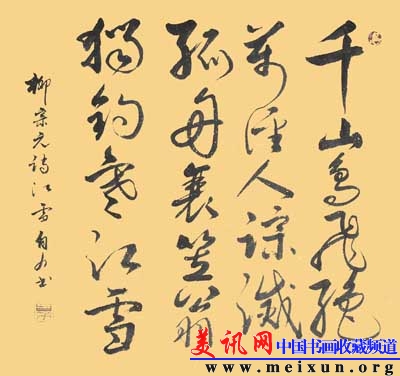 千山鳥飛絕
萬徑人踪滅
孤舟蓑笠翁
獨釣寒江雪
柳宗元詩江雪
美讯网 中国书画收藏频道
www.meixun.org